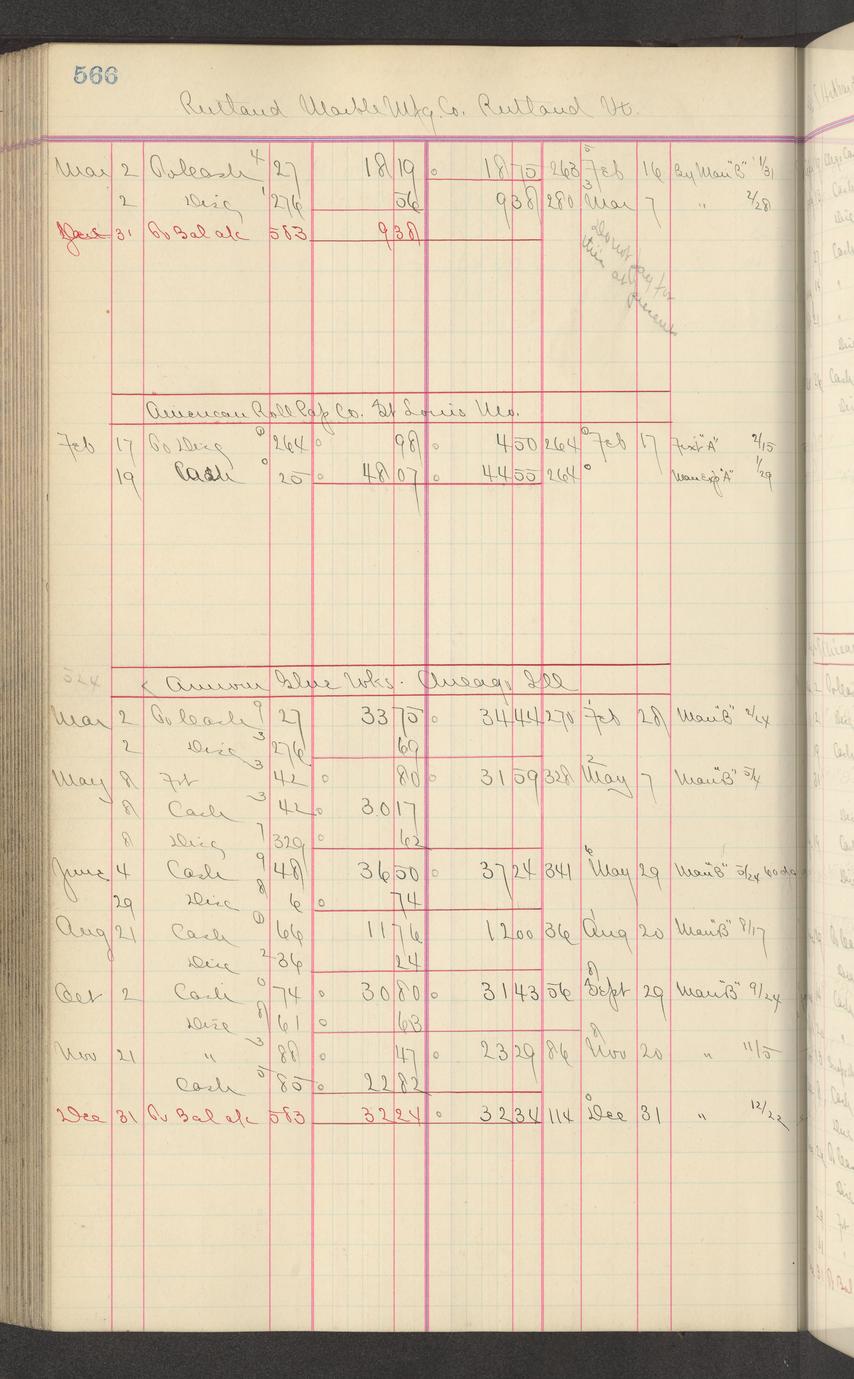 566
Rutland Marble Mfg. Co. Rutland Vt.
Mar 2 To Cash 4 27 18 19 o 18 75 263 5 Feb 16 By Man "B" 1/31
2 Disc 1 276 56 9 38 280 3 Mar 7 " 2/28
31 To Bal a/c 583 9 38
Do not pay for
this at
present
American Roll Pap Co. St Louis Mo.
Feb 17 To Disc 0 264 o 98 o 4 50 264 0 Feb 17 "A" 2/15
19 Cash 0 25 o 48 07 o 44 55 264 0 Man Exp "A" 1/29
524
Armour Glue Wks. Chicago Ill
Mar 2 To Cash 9 27 33 75 o 34 44 270 1 Feb 28 Man "B" 2/24
2 Disc 3 276 69
May 8 Frt 3 42 o 80 o 31 59 328 2 May 7 Man "B" 5/4
8 Cash 3 42 o 30 17
8 Disc 7 329 o 62
June 4 Cash 9 48 36 50 o 37 24 341 6 May 29 Man "B" 5/24 60 d
29 Disc 8 6 o 74
Aug 21 Cash 0 66 11 76 12 00 36 1 Aug 20 Man "B" 8/17
Disc 2 36 24
Oct 2 Cash 0 74 o 30 80 o 31 43 56 8 Sept 29 Man "B" 9/24
Disc 8 61 o 63
Nov 21 " 3 88 o 47 o 23 29 86 8 Nov 20 " 11/5
Cash 5 85 o 22 82
Dec 31 To Bal a/c 583 32 24 o 32 34 114 0 Dec 31 " 12/22